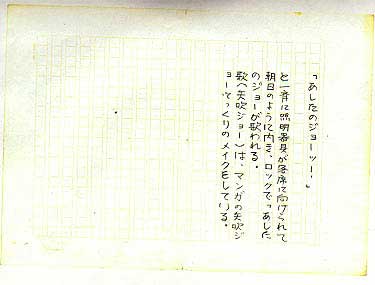 「あしたのジョーッ！」
と一斉に照明器具が客席に向けられて
朝日のように向き、ロックで「あした
のジョー」が歌われる。
歌(矢吹ジョー)は、マンガの矢吹ジ
ョーそっくりのメイクをしている。